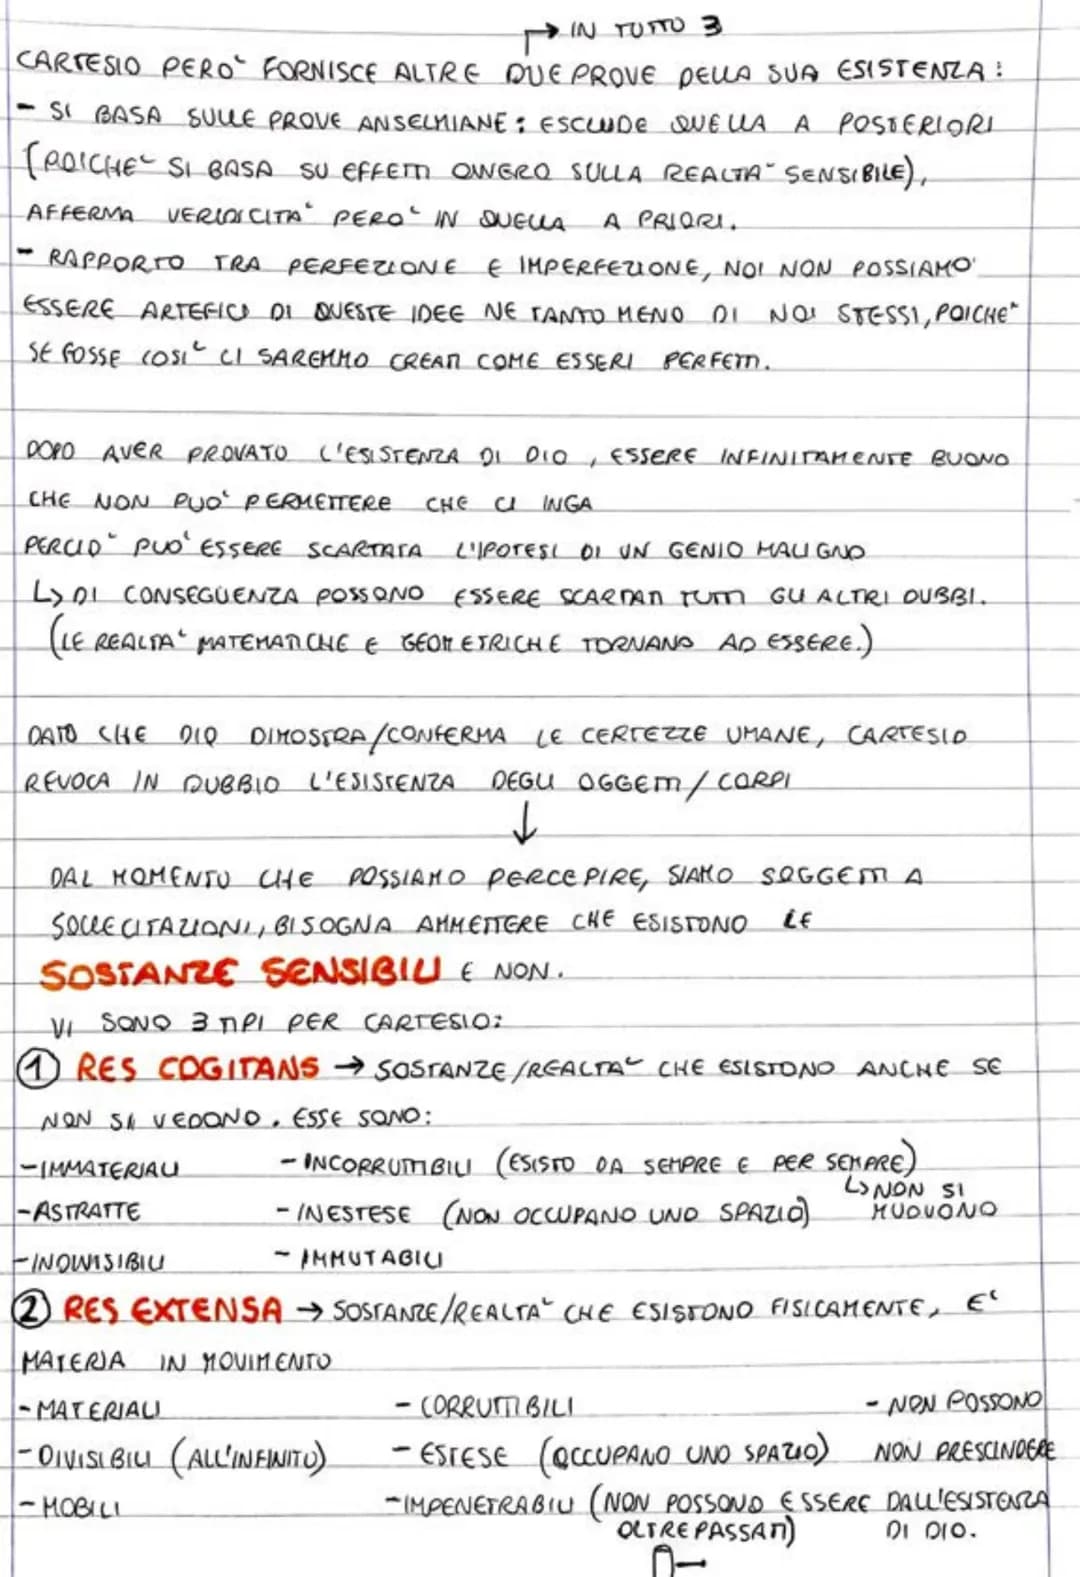 → IN TUTTO 3
CARTESIO PERO' FORNISCE ALTRE DUE PROVE DELLA SUA ESISTENZA:
- SI BASA SULLE PROVE ANSELMIANE: ESCLUDE QUELLA A POSTERIORI
(POICHE' SI BASA SU EFFETTI OVVERO SULLA REALTA' SENSIBILE),
AFFERMA VERIDICITA' PERO' IN QUELLA A PRIORI.
- RAPPORTO TRA PERFEZIONE E IMPERFEZIONE, NOI NON POSSIAMO
ESSERE ARTEFICI DI QUESTE IDEE NE TANTO MENO DI NOI STESSI, POICHE'
SE FOSSE COSI' CI SAREMMO CREATI COME ESSERI PERFETTI.
DOPO AVER PROVATO L'ESISTENZA DI DIO, ESSERE INFINITAMENTE BUONO
CHE NON PUO' PERMETTERE CHE CI INGA
PERCIO' PUO' ESSERE SCARTATA L'IPOTESI DI UN GENIO MALIGNO
↳ DI CONSEGUENZA POSSONO ESSERE SCARTATI TUTTI GLI ALTRI DUBBI.
(LE REALTA' MATEMATICHE E GEOMETRICHE TORNANO AD ESSERE.)
DATO CHE DIO DIMOSTRA/CONFERMA LE CERTEZZE UMANE, CARTESIO
REVOCA IN DUBBIO L'ESISTENZA DEGLI OGGETTI/CORPI
↓
DAL MOMENTO CHE POSSIAMO PERCEPIRE, SIAMO SOGGETTI A
SOLLECITAZIONI, BISOGNA AMMETTERE CHE ESISTONO LE
SOSTANZE SENSIBILI E NON.
VI SONO 3 TIPI PER CARTESIO:
① RES COGITANS → SOSTANZE/REALTA' CHE ESISTONO ANCHE SE
NON SI VEDONO. ESSE SONO:
-IMMATERIALI - INCORRUTTIBILI (ESISTO DA SEMPRE E PER SEMPRE)
-ASTRATTE - INESTESE (NON OCCUPANO UNO SPAZIO) ↳ NON SI MUOVONO
-INDIVISIBILI - IMMUTABILI
② RES EXTENSA → SOSTANZE/REALTA' CHE ESISTONO FISICAMENTE, E'
MATERIA IN MOVIMENTO
-MATERIALI - CORRUTTIBILI - NON POSSONO
-DIVISIBILI (ALL'INFINITO) - ESTESE (OCCUPANO UNO SPAZIO) NON PRESCINDERE
-MOBILI -IMPENETRABILI (NON POSSONO ESSERE DALL'ESISTENZA
OLTREPASSATI) DI DIO.